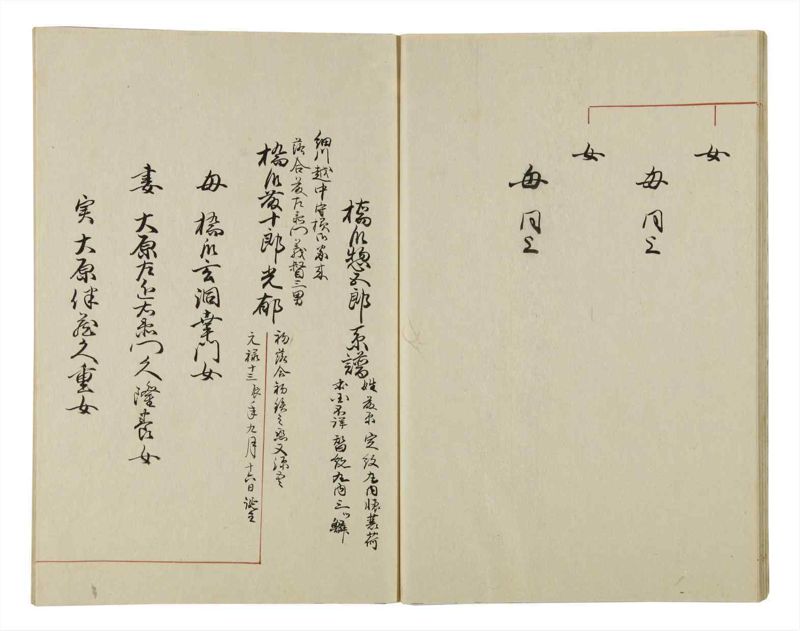 女
母 同上
女
母 同上
橋爪惣五郎系譜
姓藤原 定紋丸内抱茗荷
本国不詳 替紋丸内三ツ鱗
細川越中守様御家来
落合藤左衛門義督三男
橋爪藤十郎光郁
初落合初
元禄十三辰年九月十六日誕生
母 橋爪玄洞幸門女
妻 大原左近右衛門久隆養女
実 大原伴蔵久重女